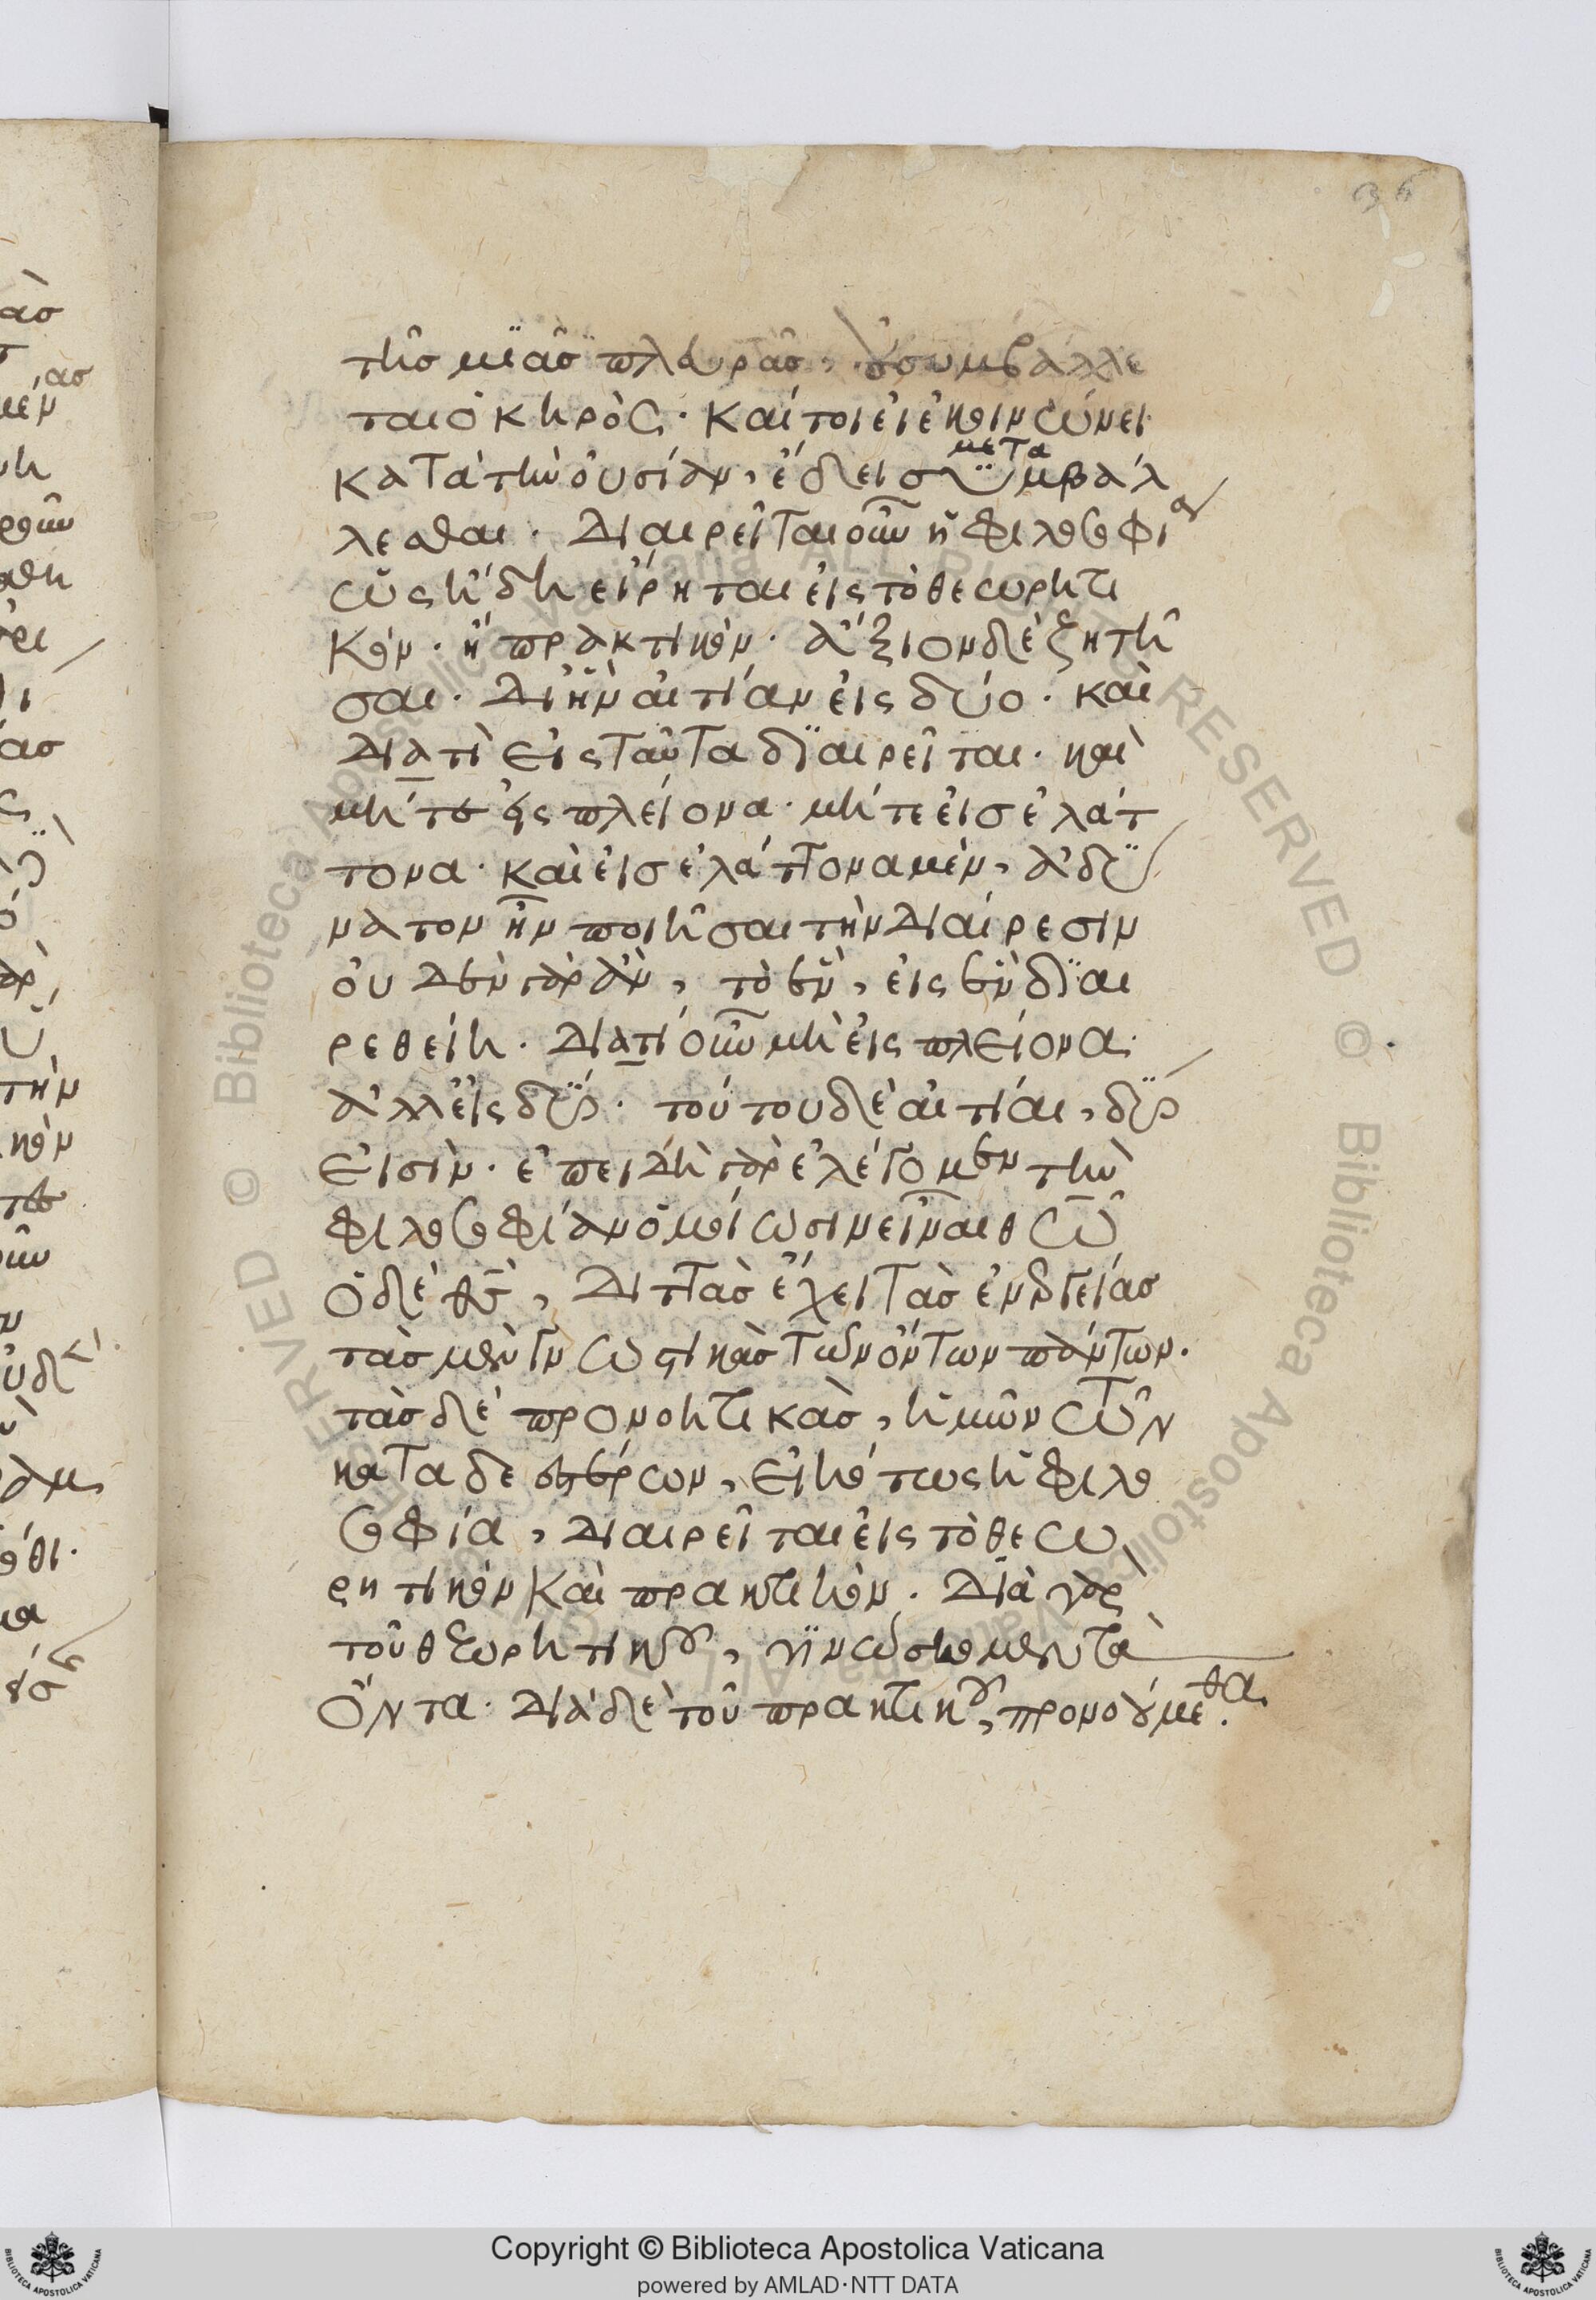 36
τῆσ μϊᾶσ πλευρᾶσ, οὐ συμβάλλε
ται ὁ κηρὸς. καίτοι εἰ ἐκοινώνει
κατὰ τὴν οὐσίαν, ἔδει συμμεταβάλ
λεσθαι. Διαιρεῖται οὖν ἡ φιλοσοφία
ὡς ἤδη εἴρηται εἰς τὸ θεωρητι
κόν. ἢ πρακτικόν. ἄξιον δὲ ζητῆ
σαι. Δι ἣν αἰτίαν εἰς δύο. καὶ
Διατὶ εἰς ταῦτα δϊαιρεῖται. καὶ
μήτε εἰς πλείονα. μήτε εἰσ ἐλάτ
τονα. καὶ εἰσ ἐλάττονα μὲν, ἀδϋ
νατον ἦν ποιῆσαι τὴν Διαίρεσιν
οὐδὲν γὰρ ἂν, τὸ ἓν, εἰς ἓν δϊαι
ρεθείη. Διατί οὖν μὴ εἰς πλείονα.
ἀλλ εἰς δύο. τούτου δὲ αἰτίαι, δύο
εἰσὶν. ἐπειδὴ γὰρ ἐλέγομεν τὴν
φιλοσοφίαν ὁμοίωσιν εἶναι θῶ
ὁ δὲ θς, Διττὰσ ἔχει τὰσ ἐνεργείασ
τὰσ μὲν γνωστικὰσ τῶν ὄντων πάντων.
τὰσ δὲ προνοητικὰσ, ἡμῶν τῶν
καταδεεστέρων, εἰκότως ἡ φιλο
σοφία, Διαιρεῖται εἰς τὸ θεω
ρητικὸν καὶ πρακτικόν. Διὰ γὰρ
τοῦ θεωρητικοῦ, γϊνώσκομεν τὰ
ὄντα. Διὰ δὲ τοῦ πρακτικοῦ, προνοούμεθα.
Copyright © Biblioteca Apostolica Vaticana
powered by AMLAD·NTT DATA